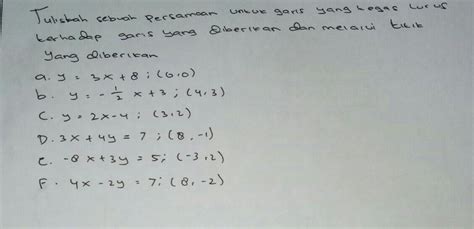 Tuliskah sebuah persamaan untuk garis yang tegas lurus
terhadap garis yang diberikan dan melalui titik
yang diberikan
a. y = 3x + 8 ; (0,0)
b. y = - 1/2 x + 3 ; (4,3)
C. y = 2x - 4 ; (3,2)
D. 3x + 4y = 7 ; (8, -1)
e. -8x + 3y = 5 ; (-3,2)
F. 4x - 2y = 7 ; (8, -2)